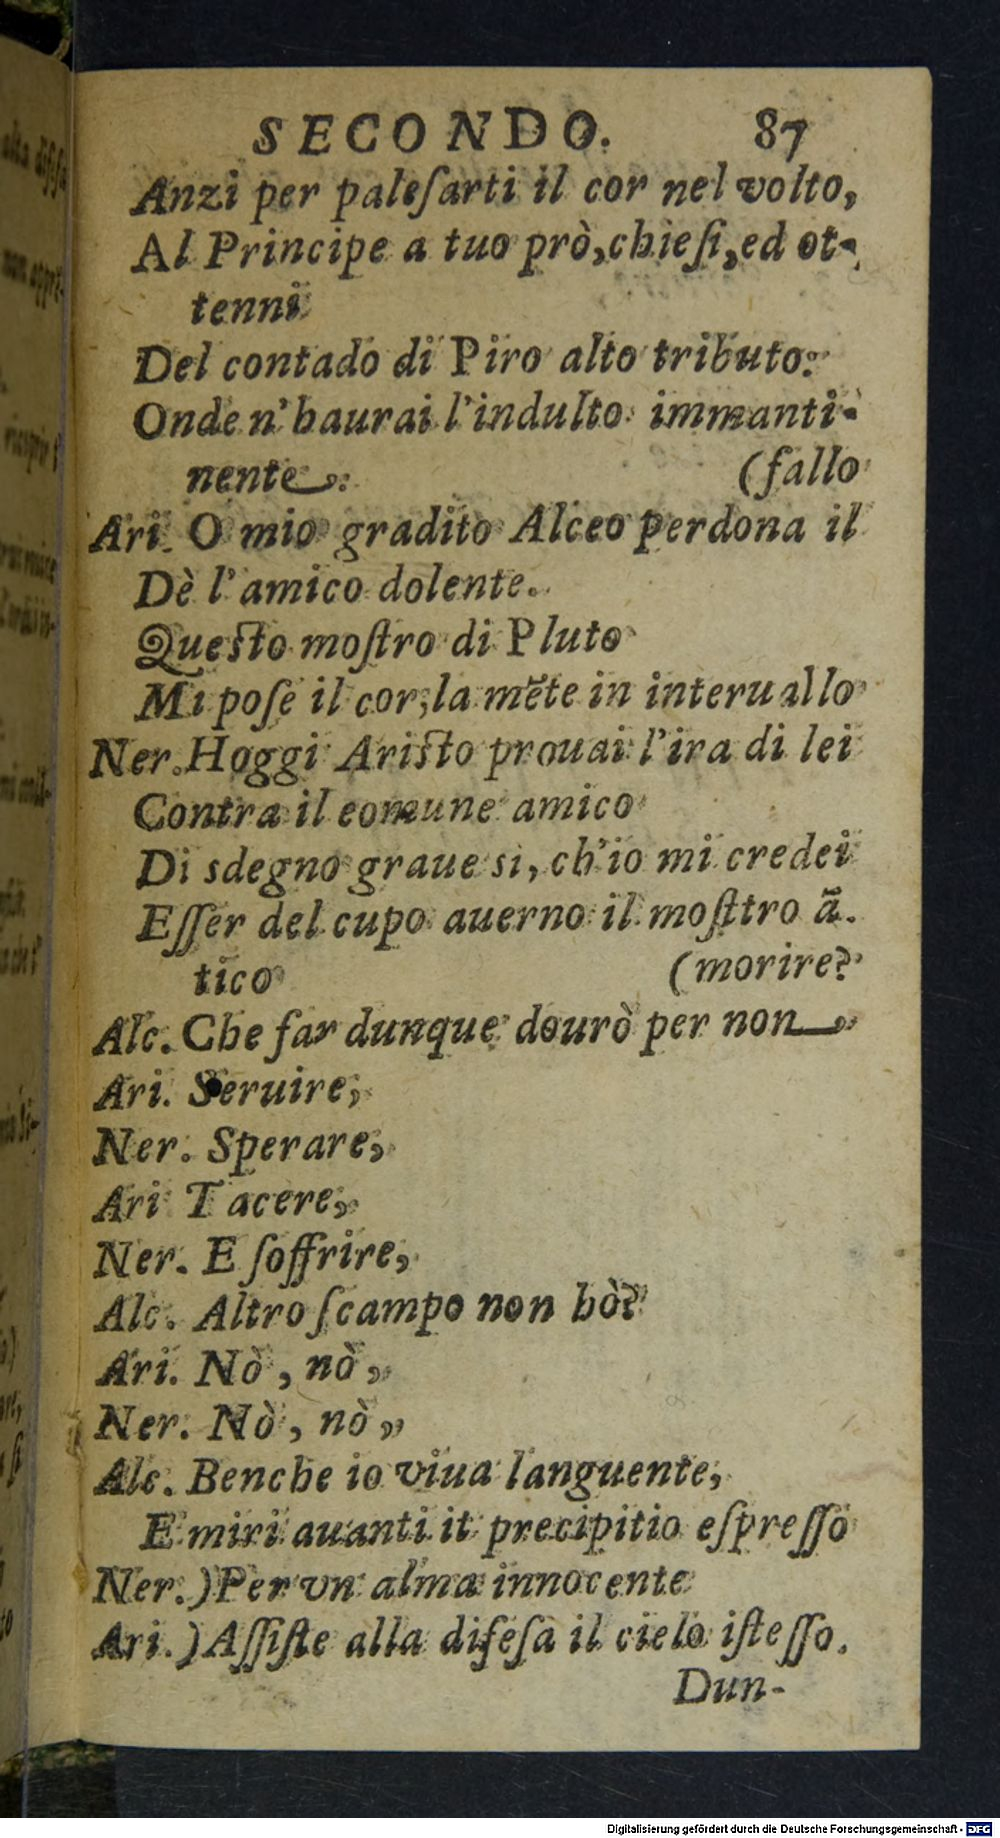 SECONDO. 87
Anzi per paleſarti il cor nel volto,
Al Principe a tuo prò, chieſi, ed ot-
tenni
Del contado di Piro alto tributo:
Onde n'haurai l'indulto immanti-
nente. (fallo
Ari. O mio gradito Alceo perdona il
Dè l'amico dolente.
Queſto moſtro di Pluto
Mi poſe il cor, la mẽte in interuallo
Ner. Hoggi Ariſto prouai l'ira di lei
Contra il eomune amico
Di sdegno graue sì, ch'io mi credei
Eſſer del cupo auerno il moſttro ã.
tico (morire?
Alc. Che far dunque dourò per non
Ari. Seruire,
Ner. Sperare,
Ari Tacere,
Ner. E ſoffrire,
Alc. Altro ſcampo non hò?
Ari. Nò, nò,
Ner. Nò, nò,
Alc. Benche io viua languente,
E miri auanti it precipitio eſpreſſo
Ner.) Per vn alma innocente
Ari.) Aſſiſte alla difeſa il cielo iſteſſo.
Dun-
Digitalisierung gefördert durch die Deutsche Forschungsgemeinschaft - DFG